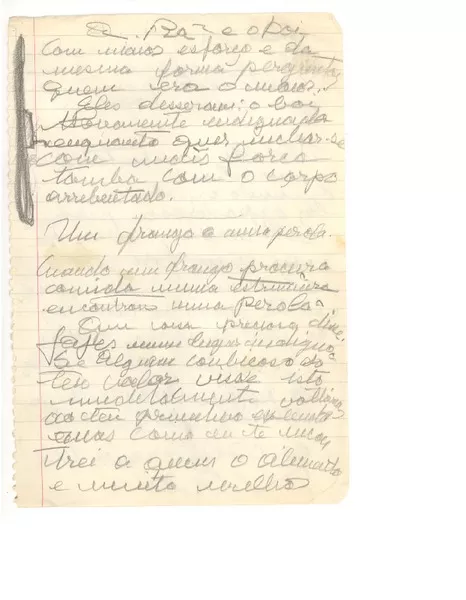 A. Rã e o boi
com maior esforço e da
mesma forma perguntou
quem era o maior.
Eles disseram: o boi
Novamente indignada
enquanto quer inchar-se
com mais força
tomba com o corpo
arrebentado.
Um frango e uma perola.
Quando um frango procura
comida numa estrumeira
encontrou uma perola:
Que coisa preciosa
jazes num lugar indigno
Se alguem cubiçoso do
teu valor visse isto
imediatamente voltarias
ao teu primeiro
mas como eu te
trei a quem o alimento
e muito melhor